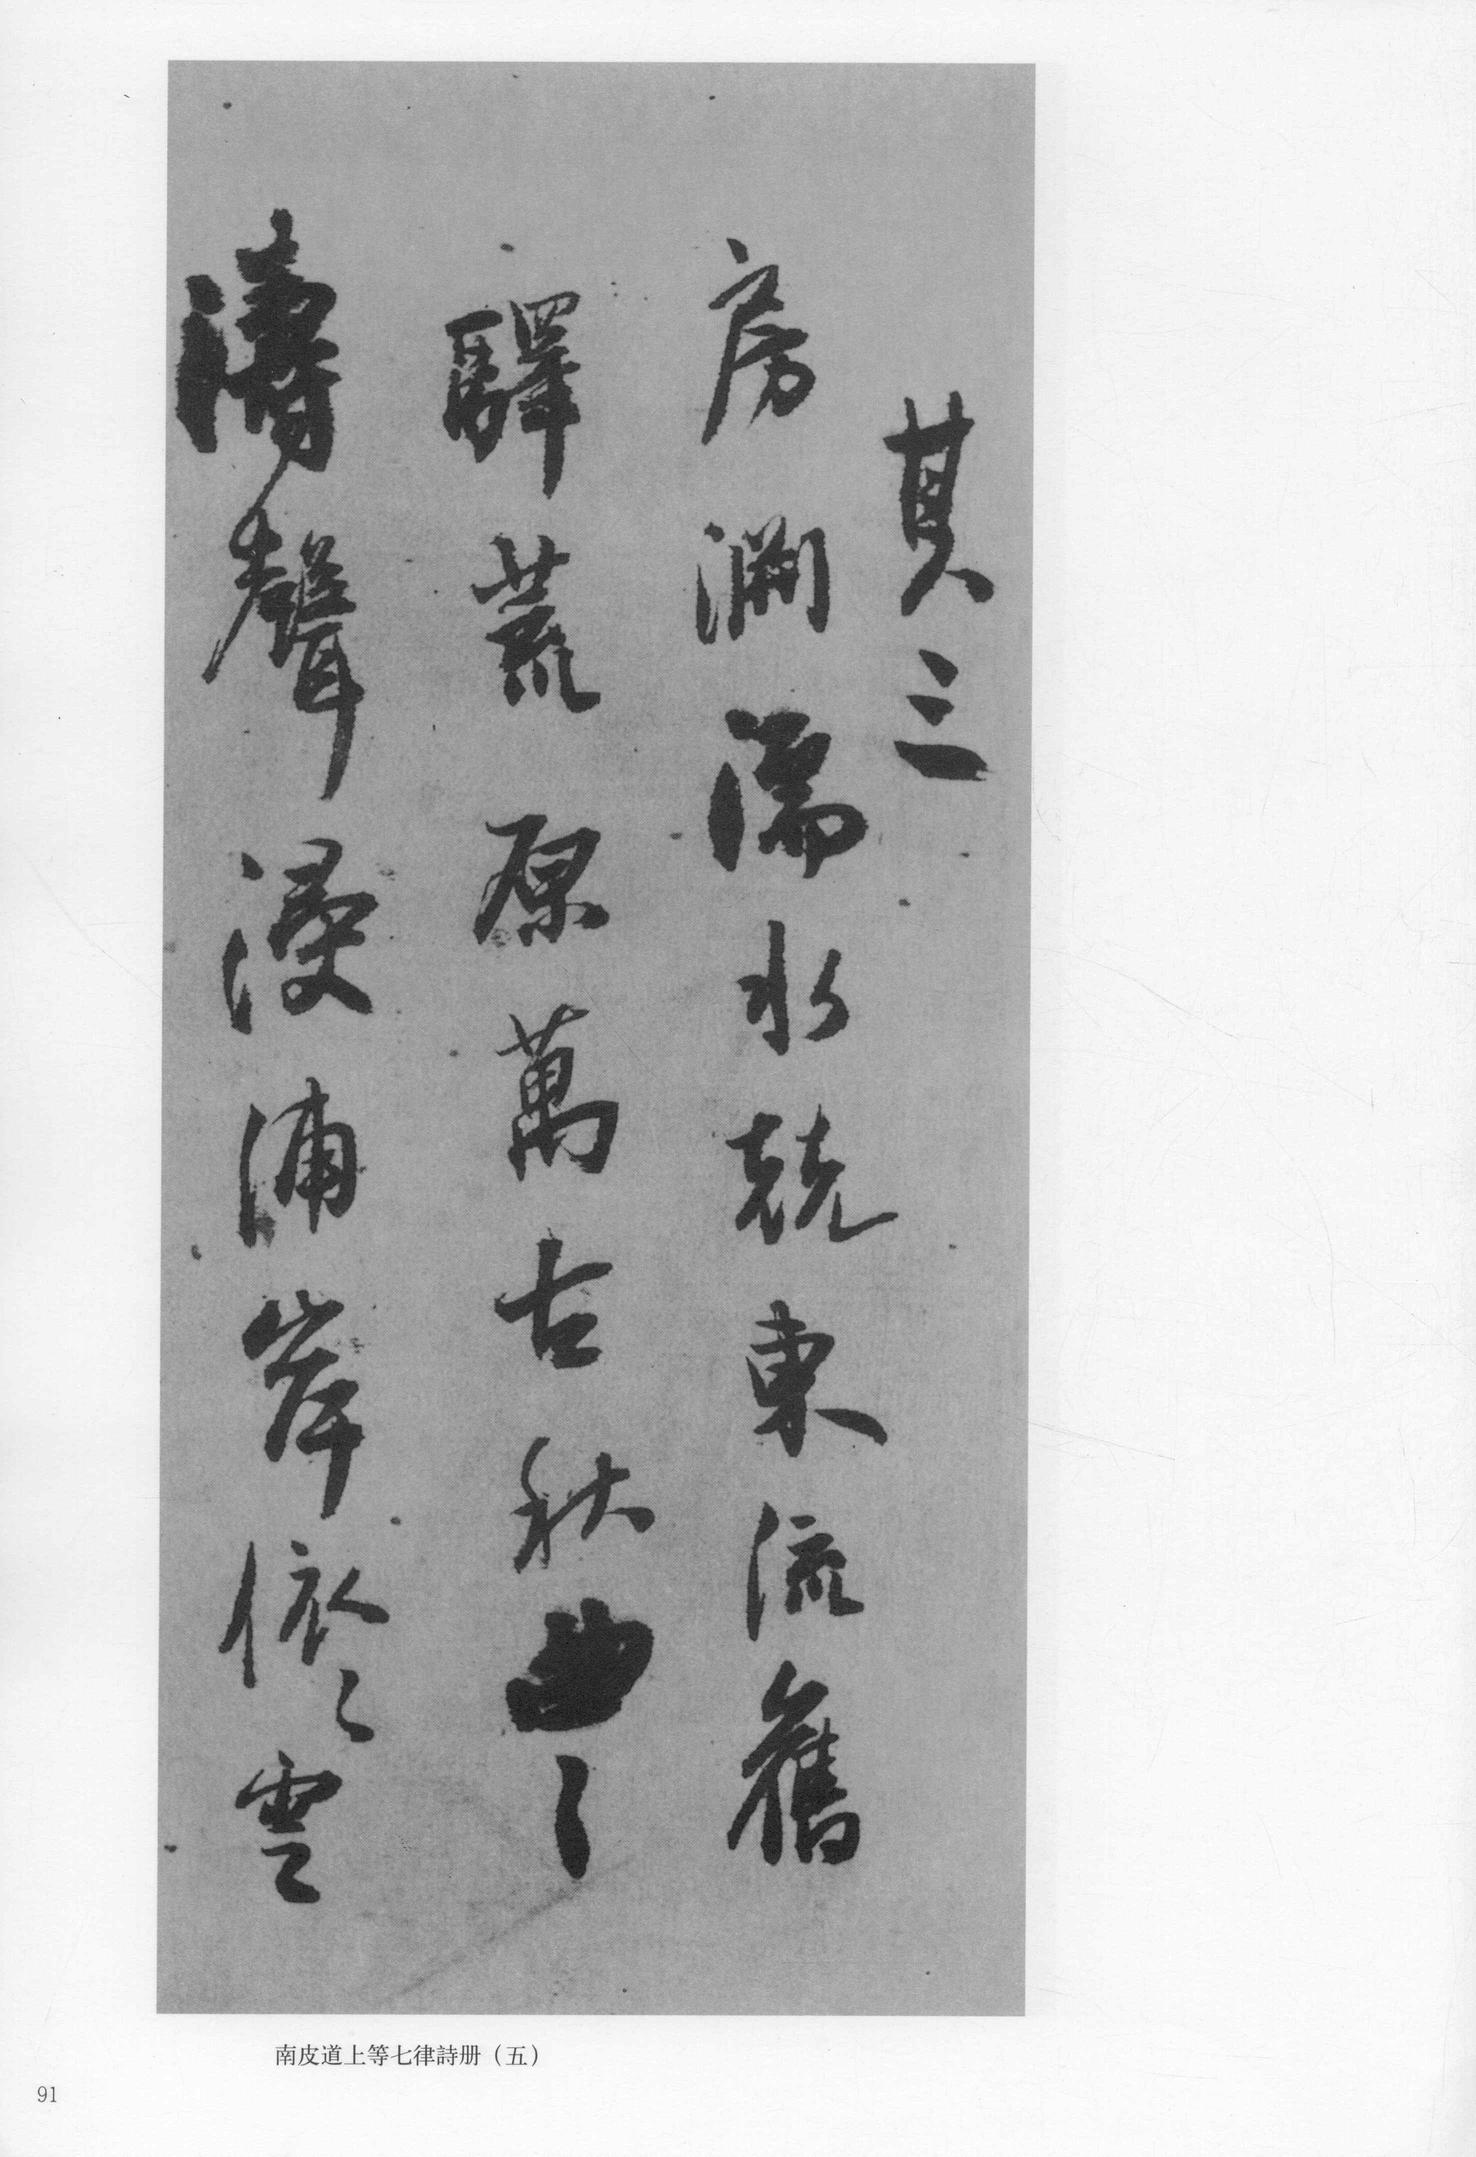 其三
房淵濡水競東流舊
驛荒原萬古秋
濤聲漫浦岸依〻雲
南皮道上等七律詩册（五）
91